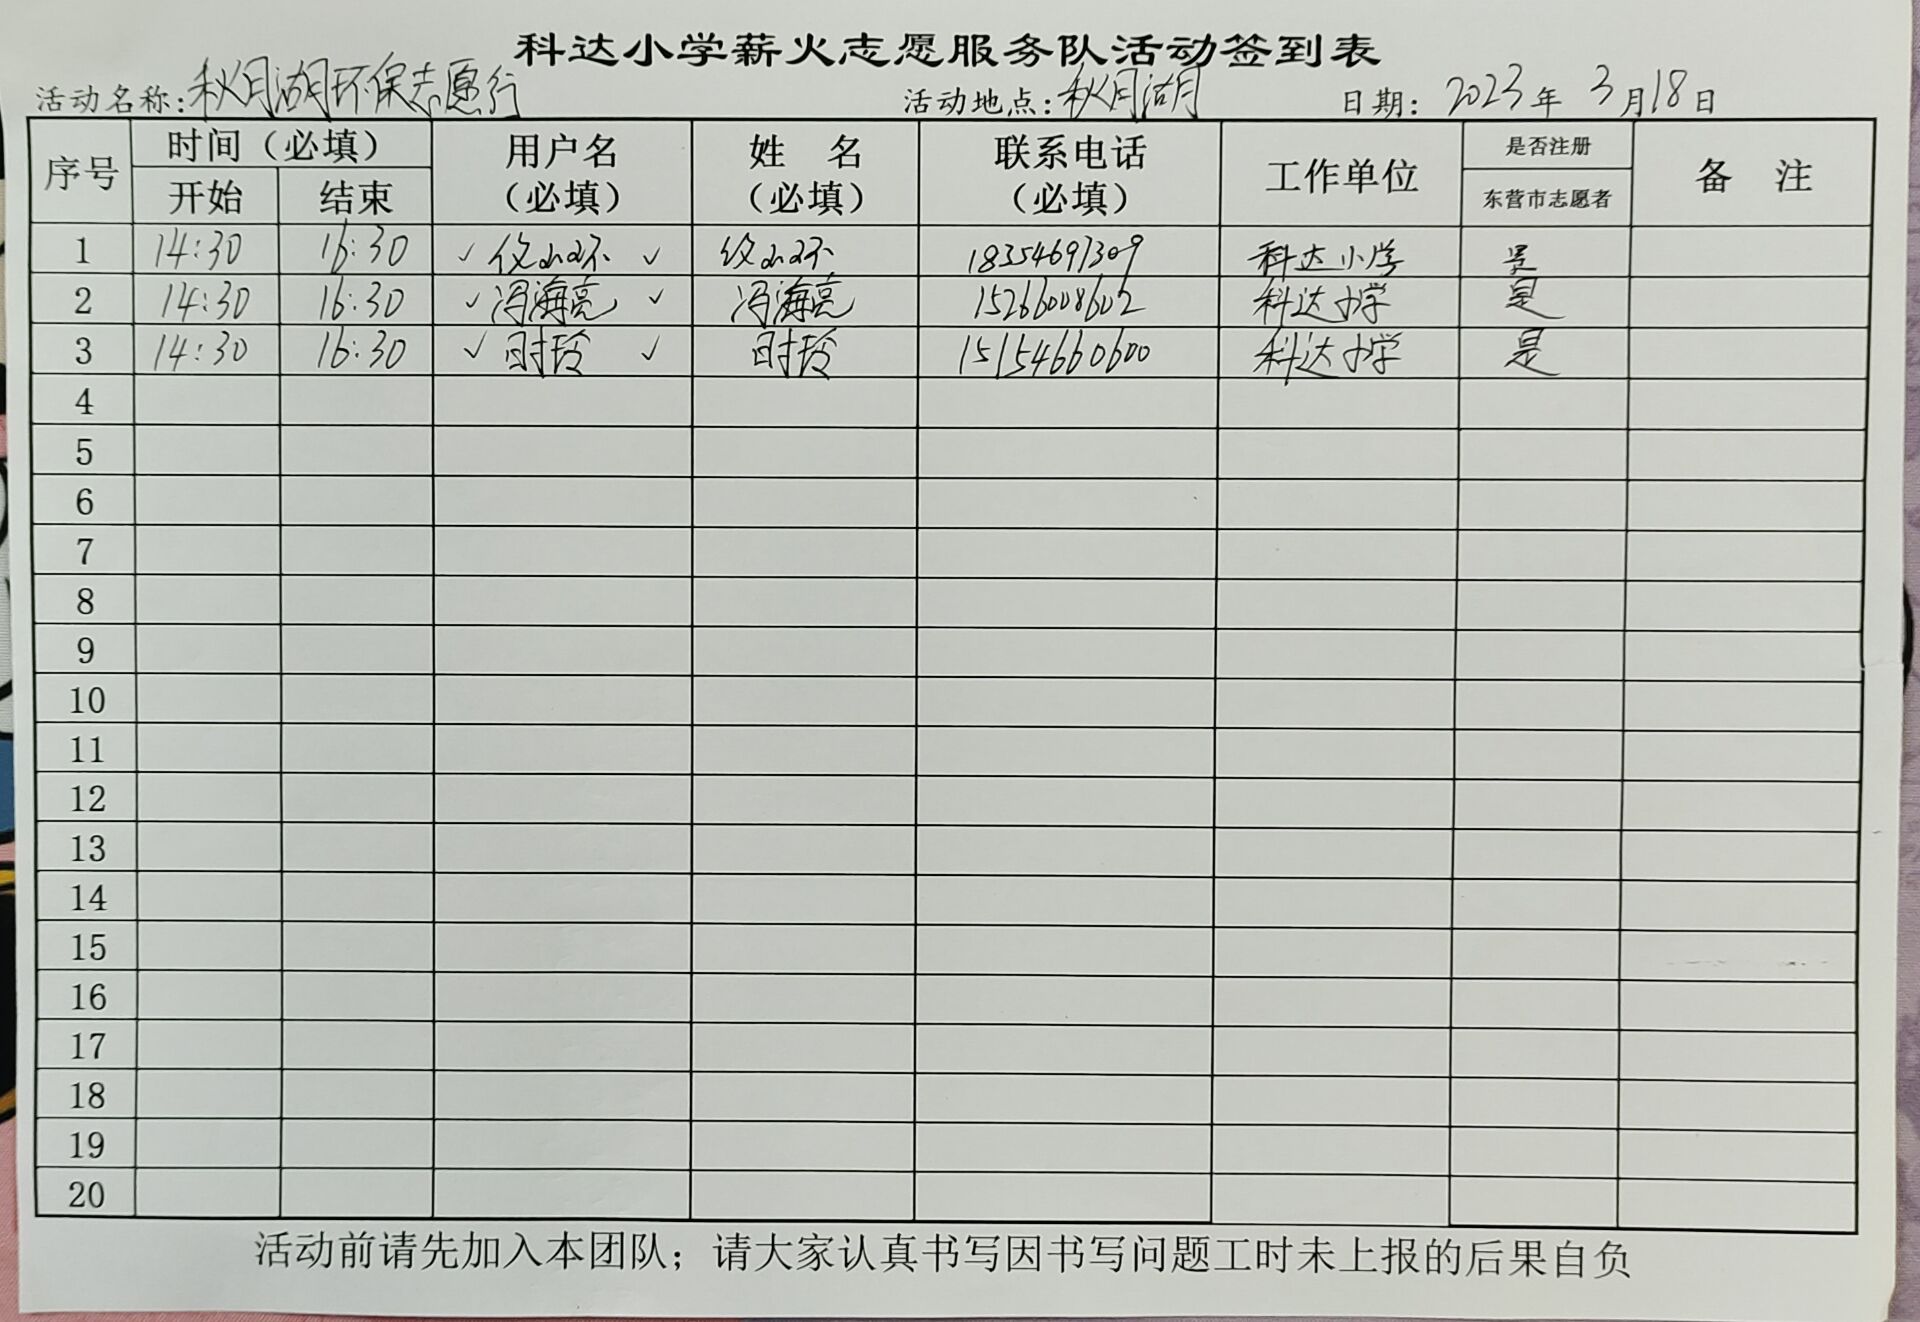 科达小学薪火志愿服务队活动签到表
活动名称:秋月湖环保志愿行 活动地点:秋月湖 日期: 2023年 3月18日
序号 时间（必填） 用户名（必填） 姓 名（必填） 联系电话（必填） 工作单位 是否注册 备 注
开始 结束 东营市志愿者
1 14:30 16:30 ✓ ✓ 18354691309 科达小学 是
2 14:30 16:30 ✓ 冯海亮 ✓ 冯海亮 15266008602 科达小学 是
3 14:30 16:30 ✓ 时玲 ✓ 时玲 15154660600 科达小学 是
4
5
6
7
8
9
10
11
12
13
14
15
16
17
18
19
20
活动前请先加入本团队；请大家认真书写因书写问题工时未上报的后果自负